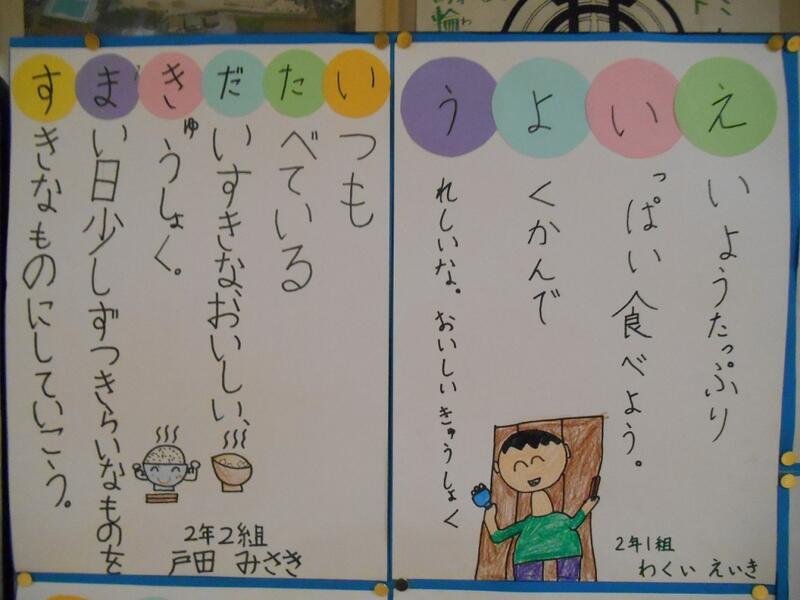 えいようたっぷり
いっぱい食べよう。
よくかんで
うれしいな。おいしいきゅうしょく
2年1組
わくい えいき
いつも
たべている
だいすきな、おいしい、
きゅうしょく。
まい日少しずつきらいなものを
すきなものにしていこう。
2年2組
戸田 みさき